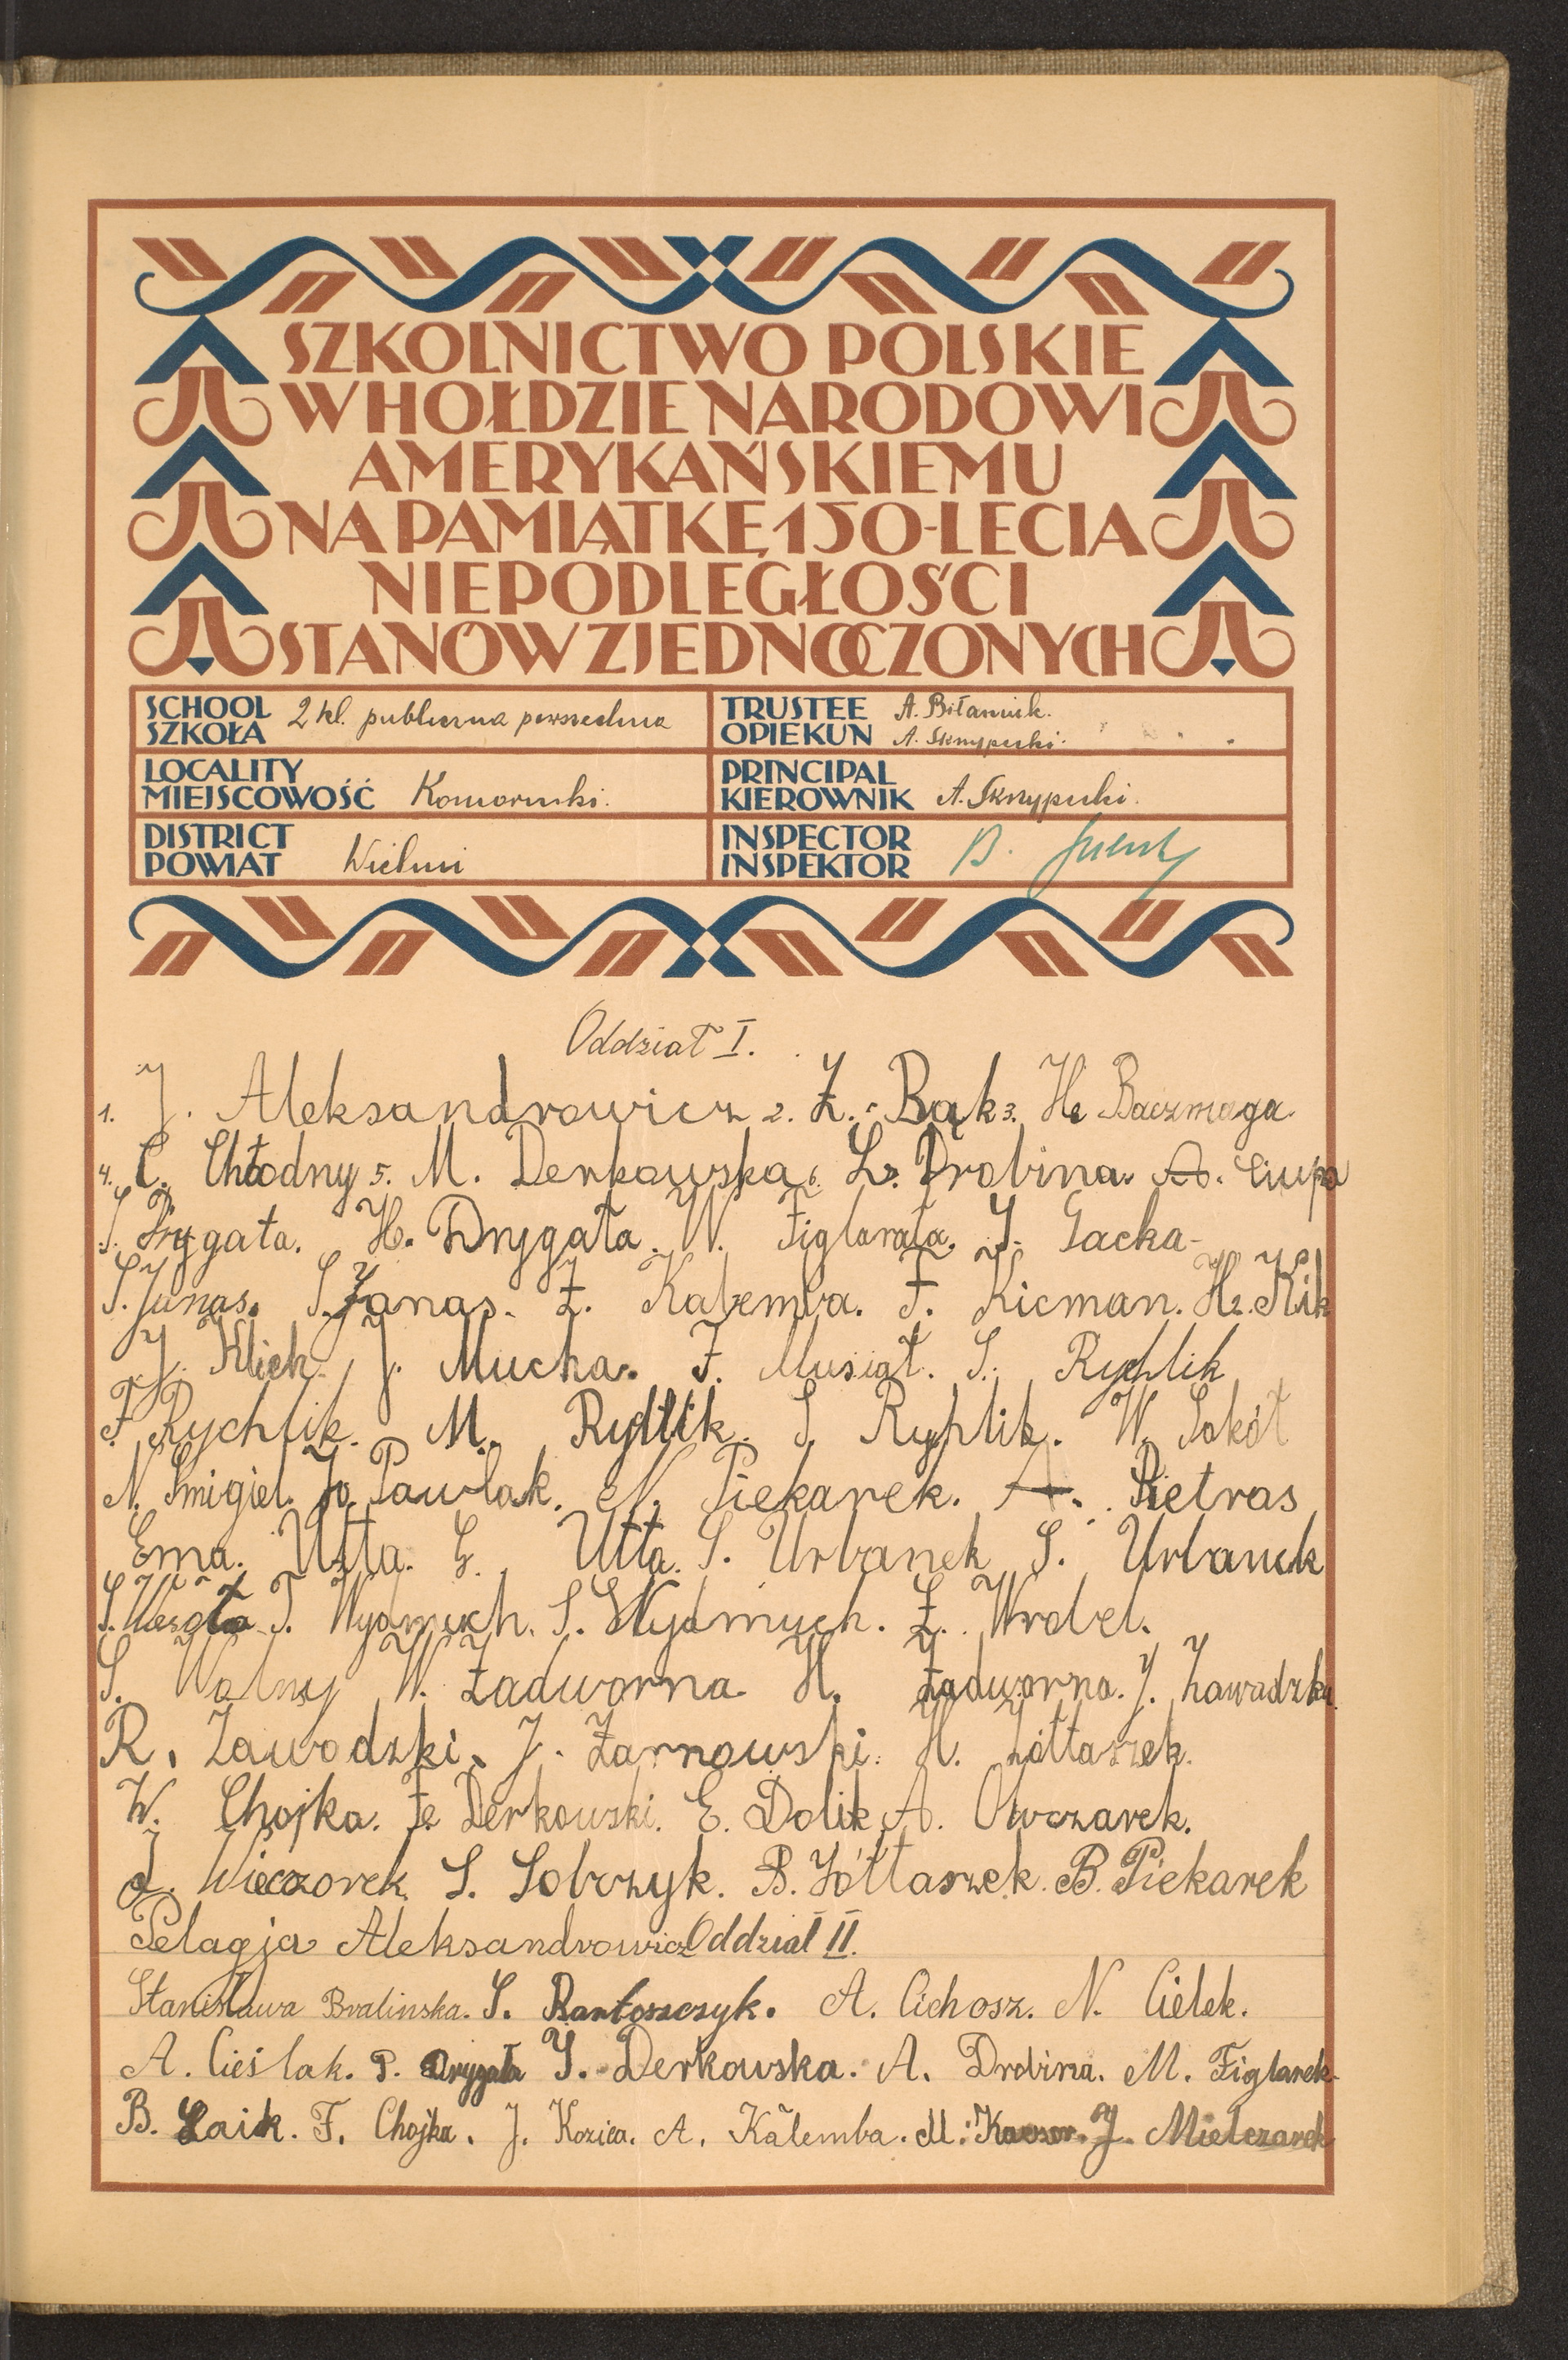 SZKOLNICTWO POLSKIE
W HOŁDZIE NARODOWI
AMERYKAŃSKIEMU
NA PAMIĄTKĘ 150-LECIA
NIEPODLEGŁOŚCI
STANÓW ZJEDNOCZONYCH
SCHOOL SZKOŁA 2 kl. publiczna powszechna
TRUSTEE OPIEKUN A. Biłaniuk. A. Skrzypicki.
LOCALITY MIEJSCOWOŚĆ Komorniki.
PRINCIPAL KIEROWNIK A. Skrzypicki.
DISTRICT POWIAT Wieluń
INSPECTOR INSPEKTOR B.
Oddział I.
1. J. Aleksandrowicz 2. Z. Bąk 3. He Baczmaga
4. C. Chłodny 5. M. Derkowska 6. L. Drobina. A. Ciupa
S. Drygała. H. Drygała. W. Figlarała. J. Gacka
S. Junas. S. Janas. Z. Kalemba. F. Kicman. He. Kik
J. Klich. J. Mucha. F. Musiał. S. Rychlik
F. Rychlik. M. Rychlik. S. Ryhlik. W. Sokół
N. Smigiel. Jo Pawlak. N. Piekarek. A. Pietras
Ema. Utta. G. Utta. S. Urbanek S. Urbanek
S. T. Wydmuch. S. Wydmuch. Z. Wrobel.
S. Wolny W. Zadworna H. Zadworna. J. Zawadzka
R. Zawodzki. J. Żarnowski. H. Żółtaszek.
W. Chojka. Fe Derkowski. E. Dolik A. Owczarek.
J. Wieczorek S. Sobczyk. B. Żółtaszek. B. Piekarek
Pelagja Aleksandrowicz Oddział II.
Stanisława Bralinska. S. Bartoszczyk. A. Cichosz. N. Cielek.
A. Cieślak. P. Drygała J. Derkowska. A. Drobina. M. Figlarek
B. Łaik. F. Chojka. J. Kozica. A. Kalemba. M. J. Mielczarek